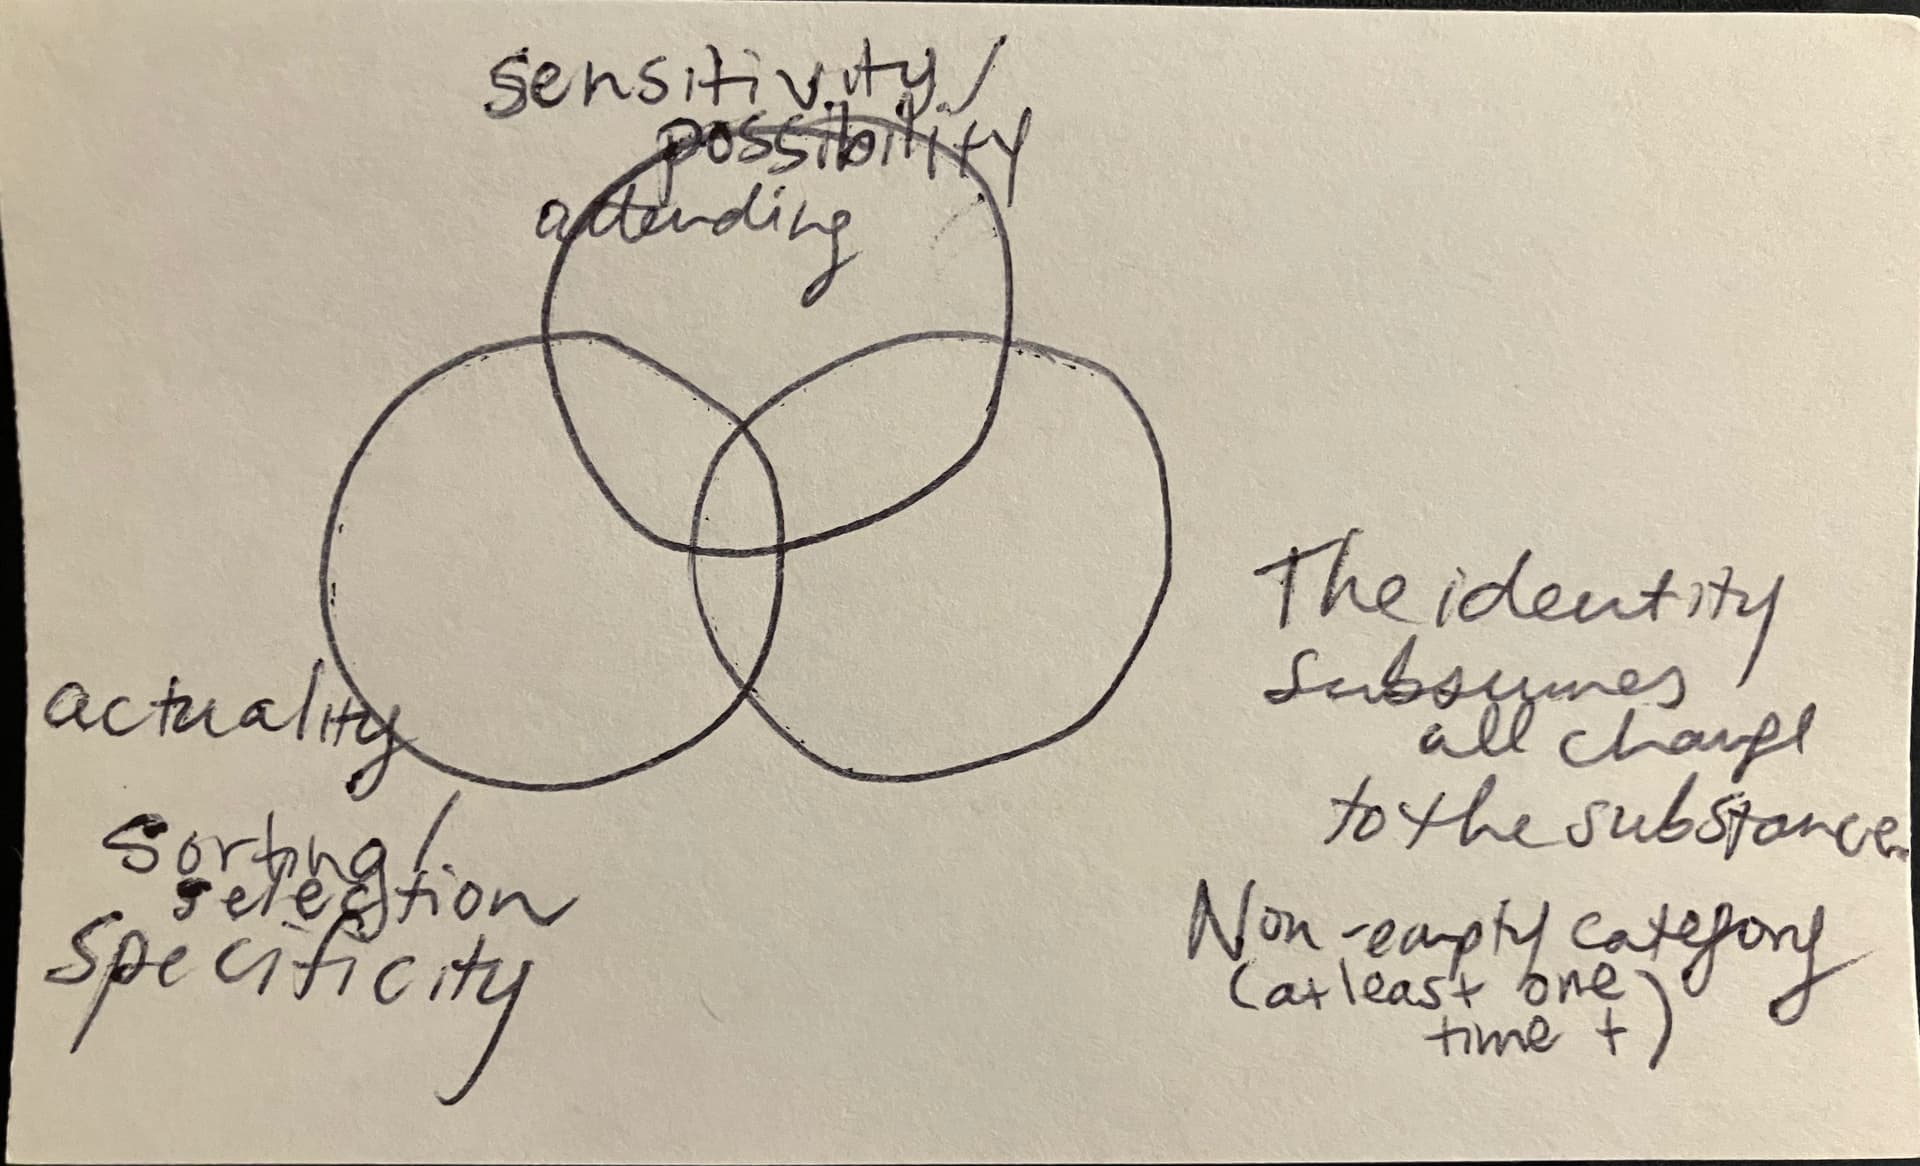 sensitivity/
possibility
attending
actuality
sorting/
selection
specificity
The identity
subsumes
all change
to the substance.
Non-empty category
(at least one
time t)